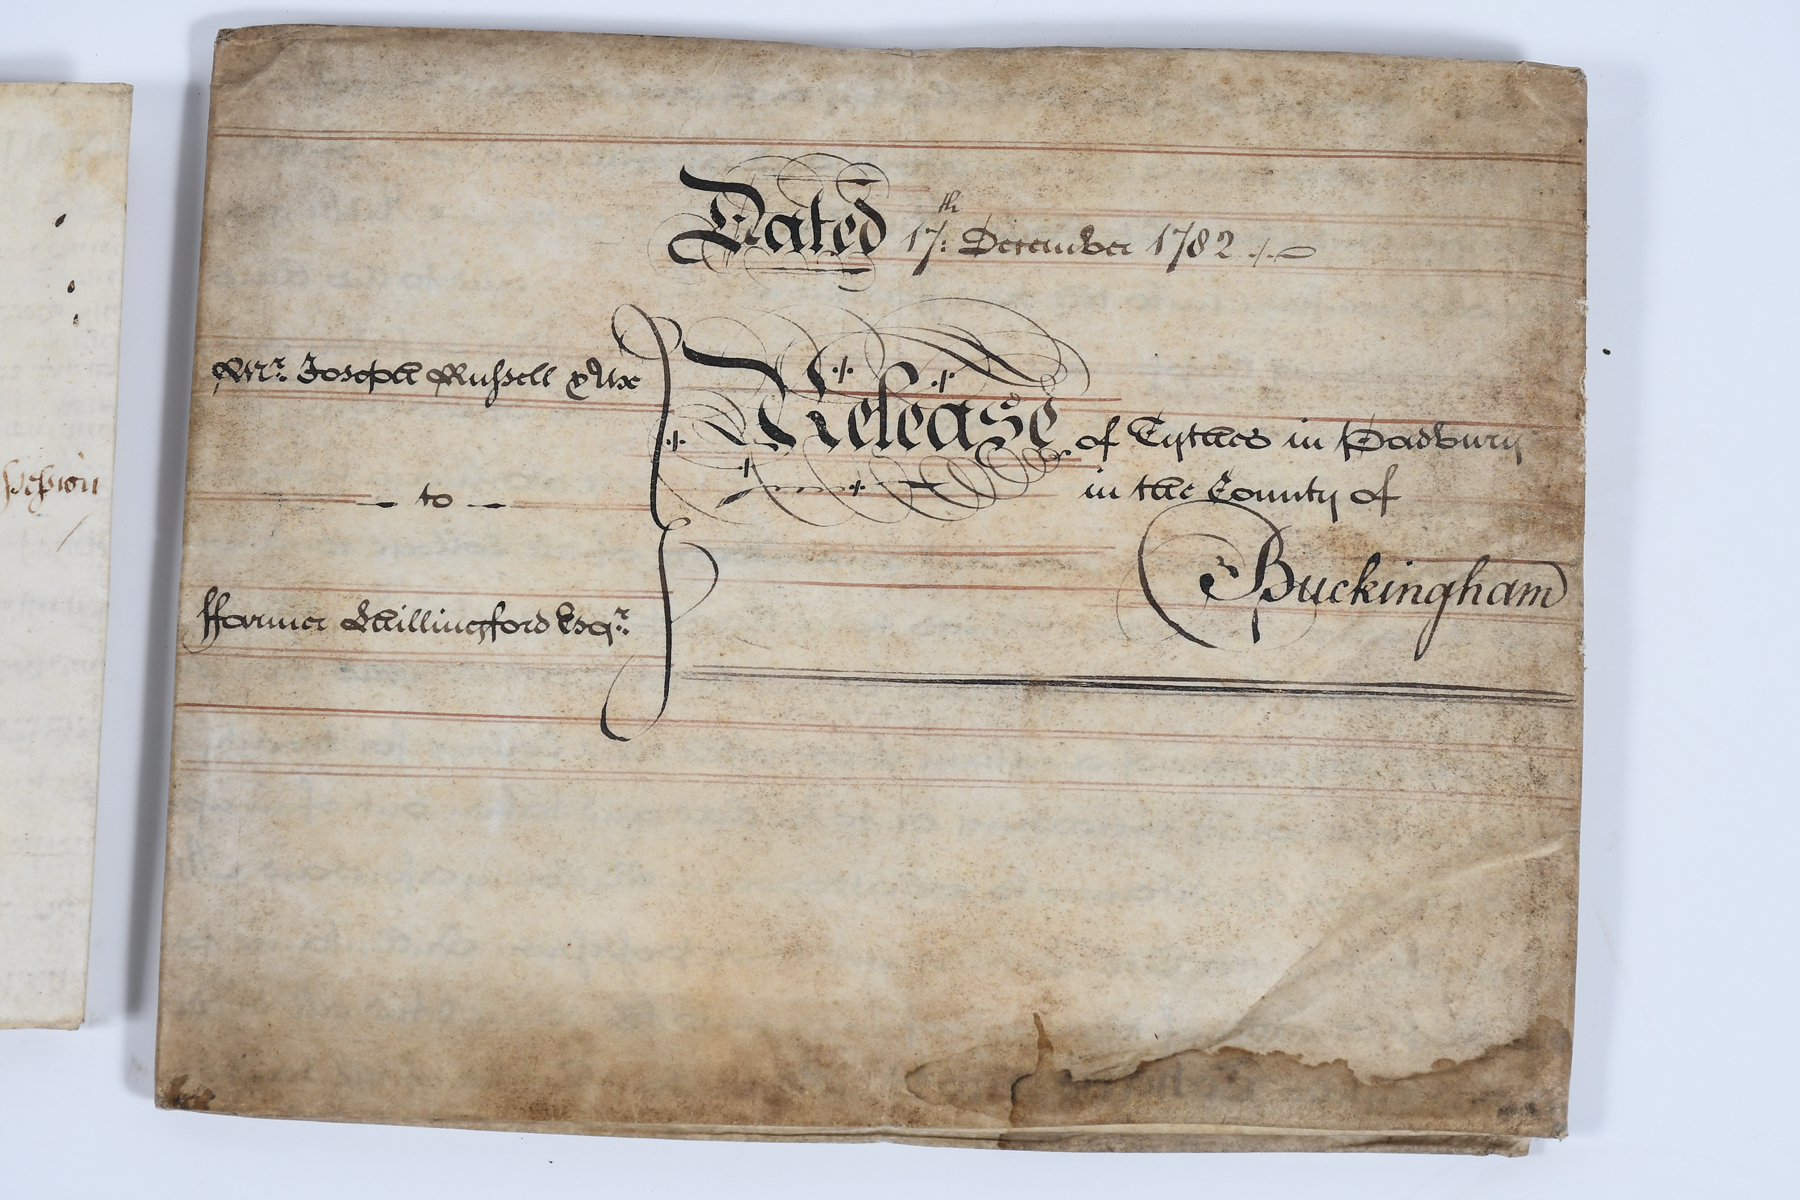 Dated 17th: December 1782
Mr. Joseph Russell & Ux
Release of Tythes in Padbury
in the County of
to
Buckingham
ffarmer Shillingford Esqr.